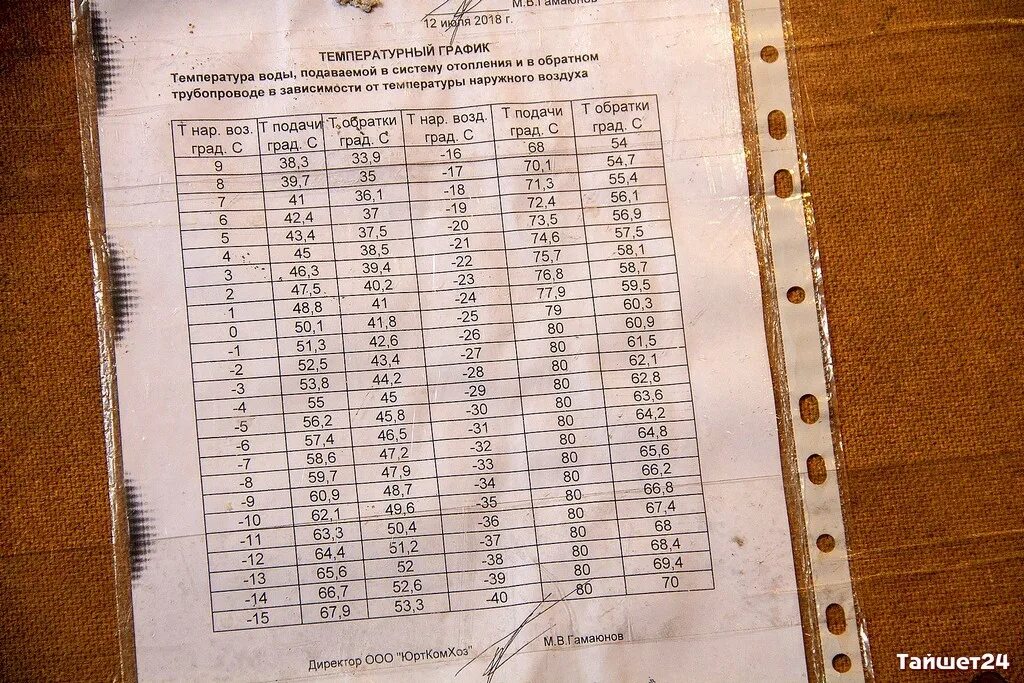 М.В.Гамаюнов
12 июля 2018 г.
ТЕМПЕРАТУРНЫЙ ГРАФИК
Температура воды, подаваемой в систему отопления и в обратном
трубопроводе в зависимости от температуры наружного воздуха
Т нар. воз. Т подачи Т обратки Т нар. возд. Т подачи Т обратки
град. С град. С град. С град. С град. С град. С
9 38,3 33,9 -16 68 54
8 39,7 35 -17 70,1 54,7
7 41 36,1 -18 71,3 55,4
6 42,4 37 -19 72,4 56,1
5 43,4 37,5 -20 73,5 56,9
4 45 38,5 -21 74,6 57,5
3 46,3 39,4 -22 75,7 58,1
2 47,5 40,2 -23 76,8 58,7
1 48,8 41 -24 77,9 59,5
0 50,1 41,8 -25 79 60,3
-1 51,3 42,6 -26 80 60,9
-2 52,5 43,4 -27 80 61,5
-3 53,8 44,2 -28 80 62,1
-4 55 45 -29 80 62,8
-5 56,2 45,8 -30 80 63,6
-6 57,4 46,5 -31 80 64,2
-7 58,6 47,2 -32 80 64,8
-8 59,7 47,9 -33 80 65,6
-9 60,9 48,7 -34 80 66,2
-10 62,1 49,6 -35 80 66,8
-11 63,3 50,4 -36 80 67,4
-12 64,4 51,2 -37 80 68
-13 65,6 52 -38 80 68,4
-14 66,7 52,6 -39 80 69,4
-15 67,9 53,3 -40 80 70
Директор ООО "ЮртКомХоз" М.В.Гамаюнов
Тайшет24